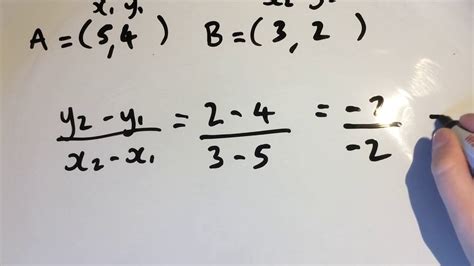 x₁ y₁
A = (5,4) B = (3, 2)
y₂ - y₁ / x₂ - x₁ = 2 - 4 / 3 - 5 = - / -2